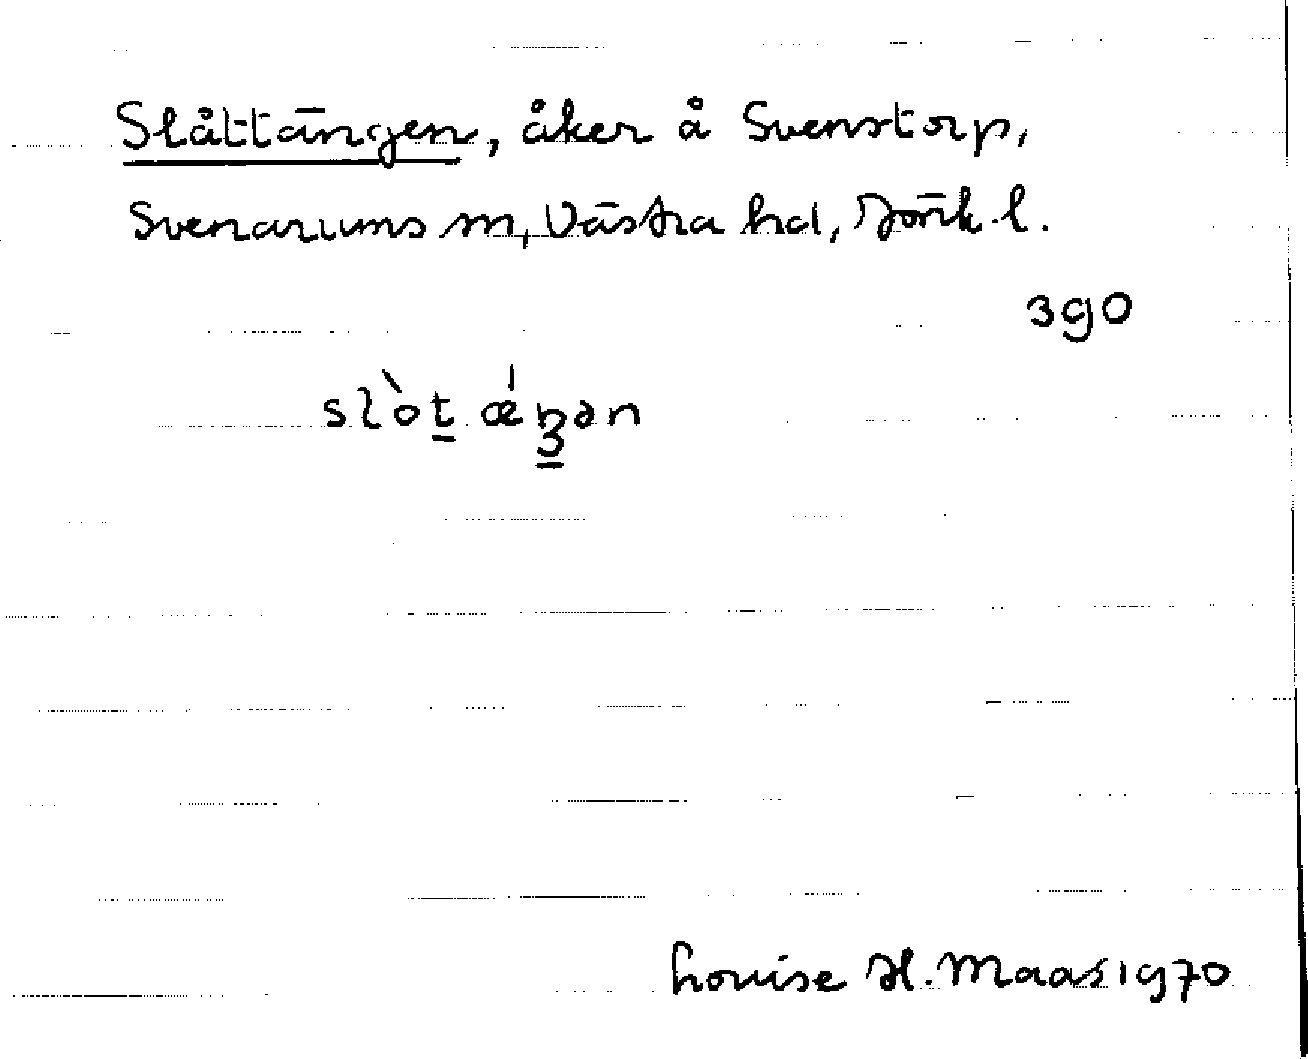 Slättängen, åker å Svenstorp,
Svenarums sn, Västra hd, Jönk. l.
390
slòt ǽŋən
Louise H. Maas 1970